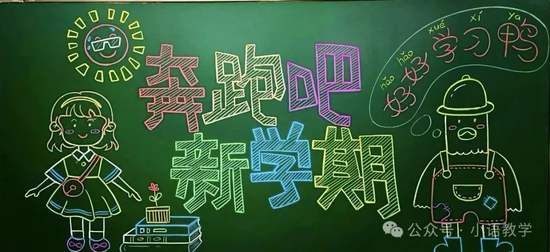 奔跑吧
新学期
hǎo hǎo xué xí ya
好好学习鸭
公众号·小语教学